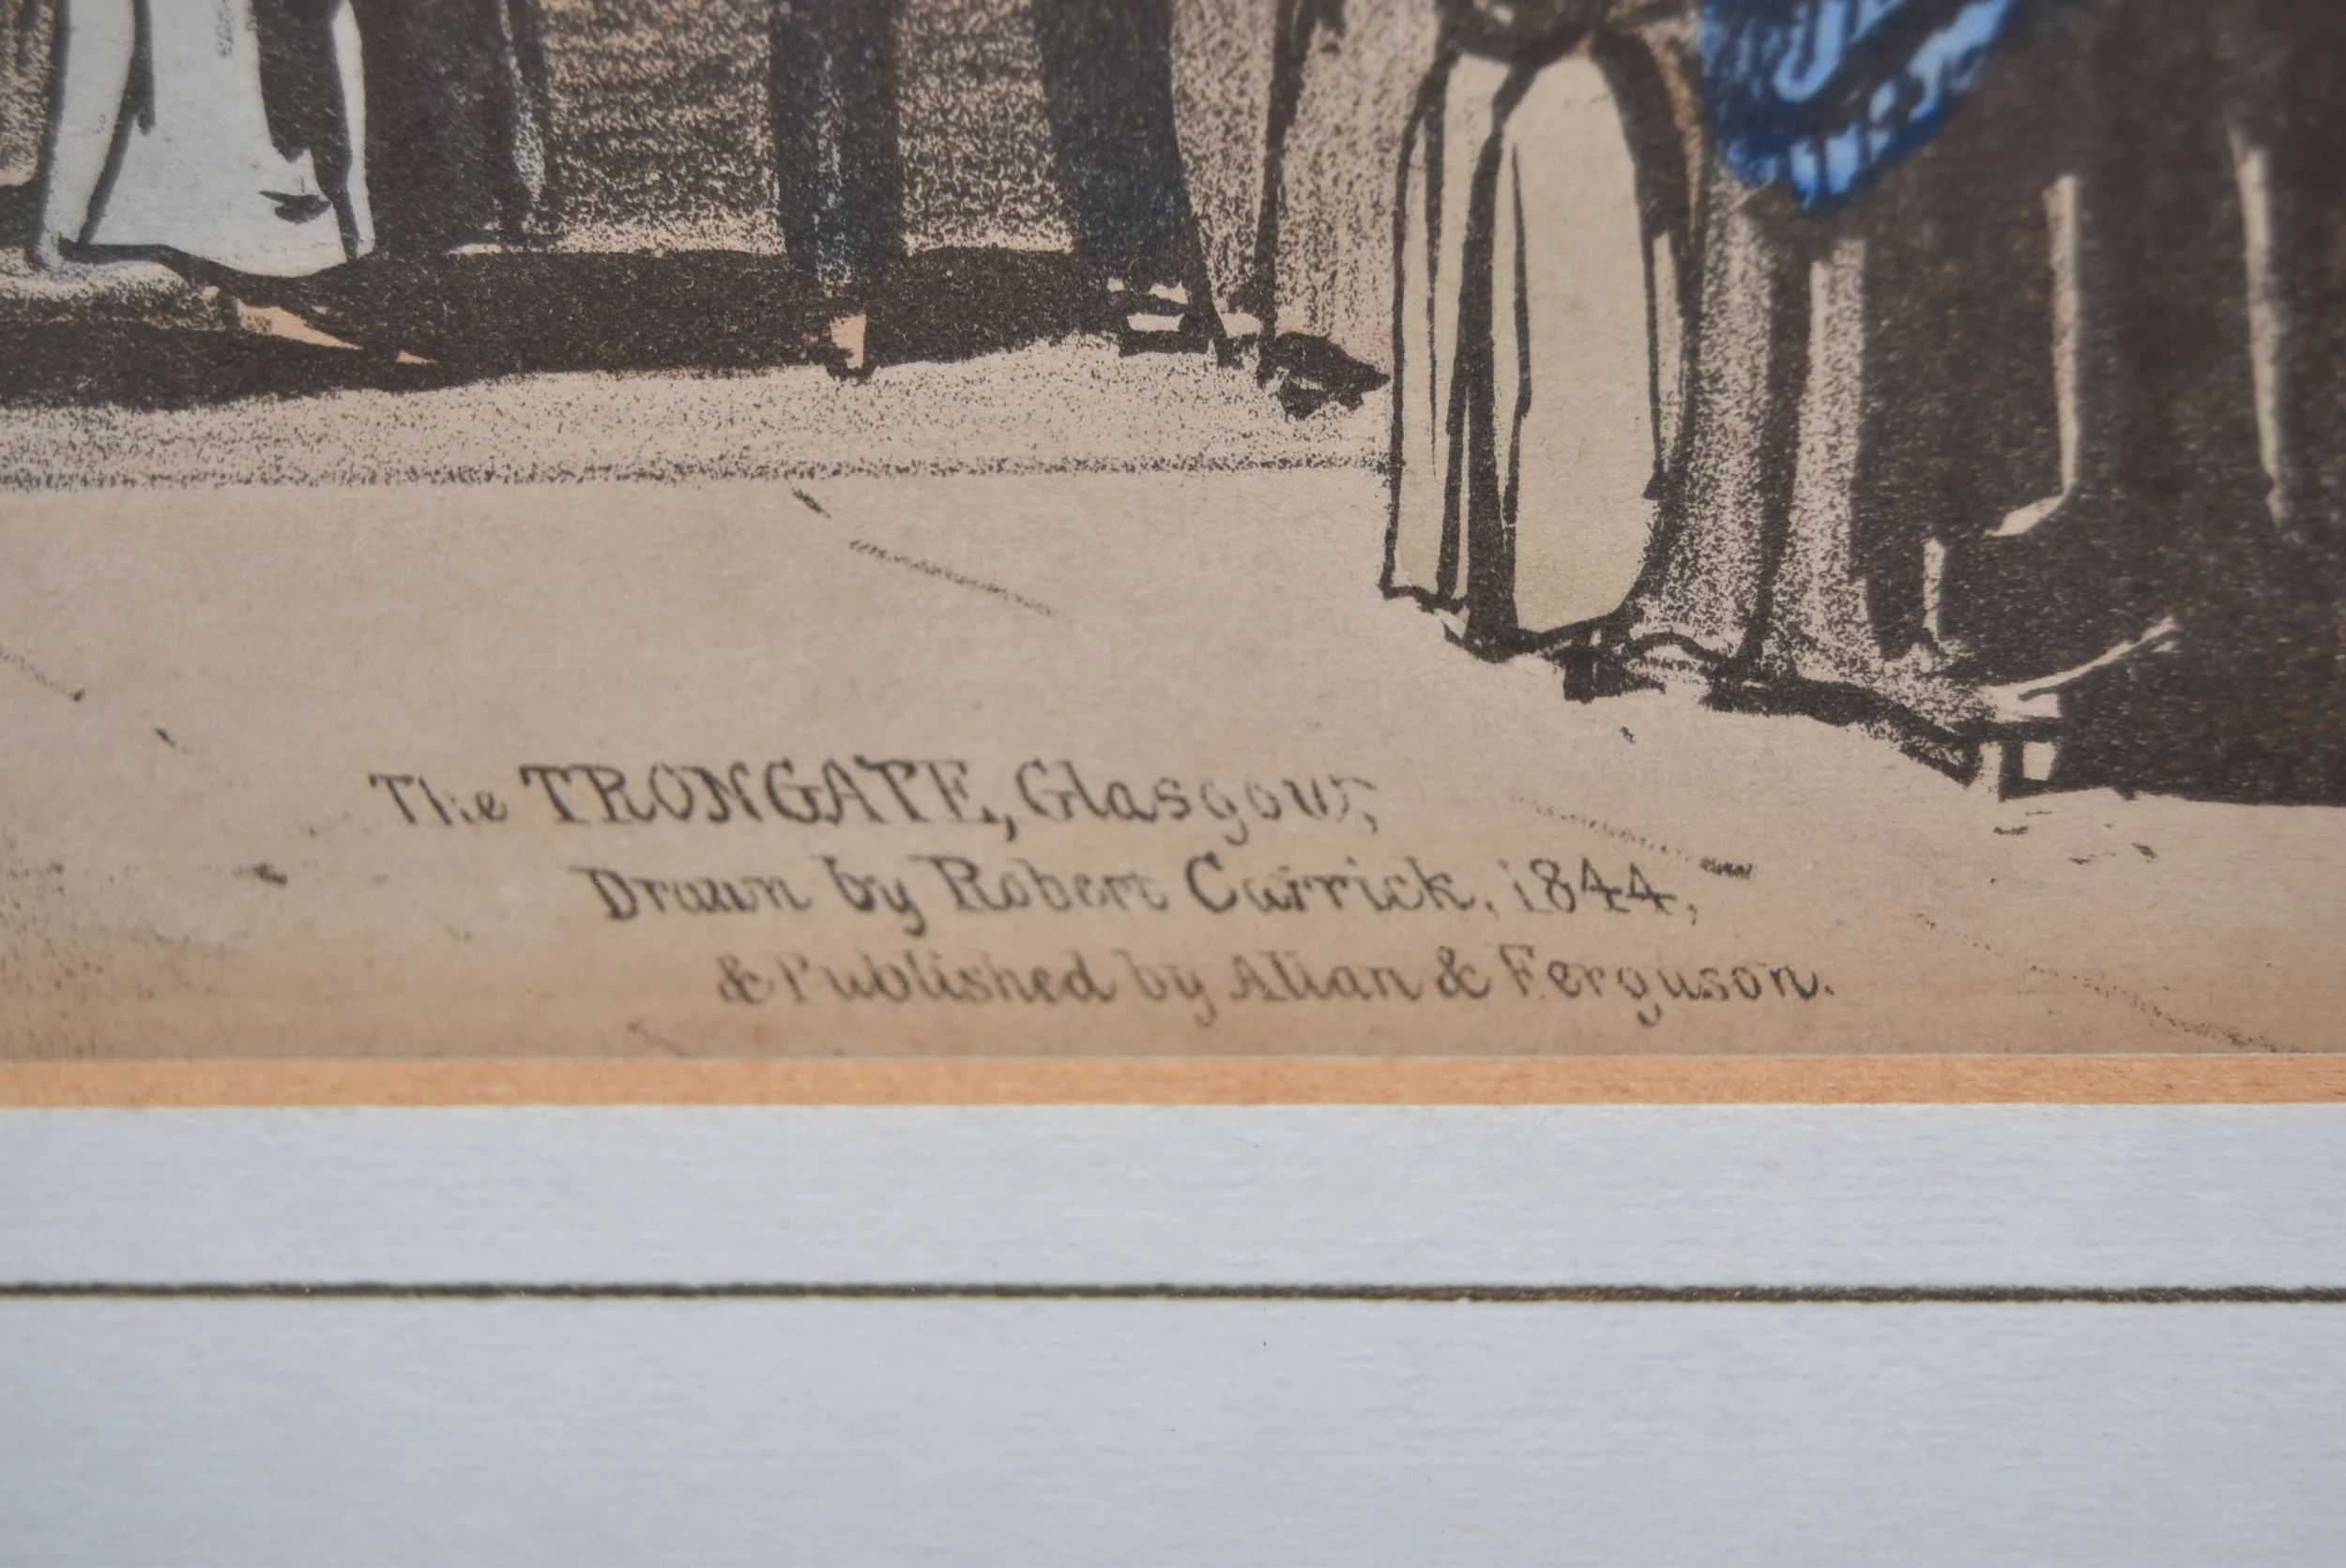 The TRONGATE, Glasgow,
Drawn by Robert Carrick, 1844,
& Published by Allan & Ferguson.